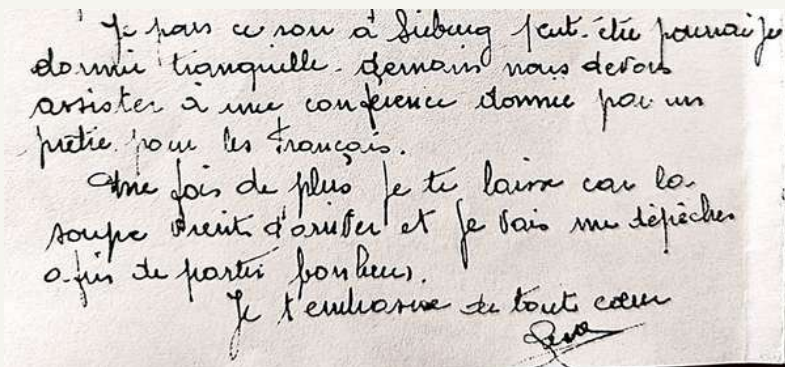 Je pars ce soir à Sieburg peut-être pourrai je
dormir tranquille. demain nous devons
assister à une conférence donnée par un
prêtre pour les Français.
Une fois de plus je te laisse car la
soupe vient d'arriver et je vais me dépêcher
afin de partir bonheur.
Je t'embrasse de tout cœur